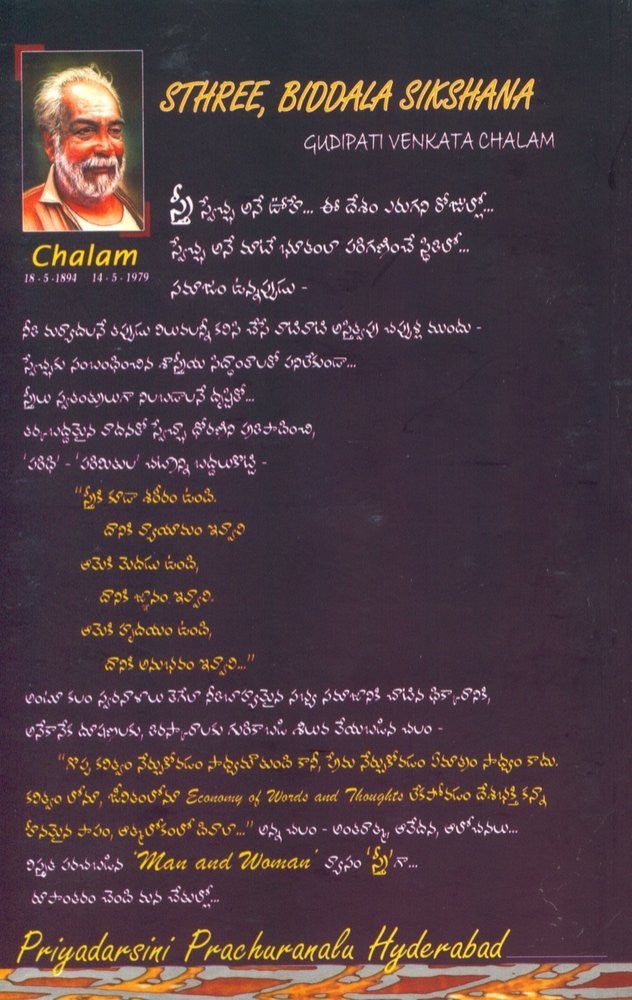 STHREE, BIDDALA SIKSHANA
GUDIPATI VENKATA CHALAM
Chalam
18-5-1894 14-5-1979
స్త్రీ స్వేచ్ఛ అనే ఊహే... ఈ దేశం ఎరుగని రోజుల్లో...
స్వేచ్ఛ అనే మాటే భూతంలా పరిగణించే స్థితిలో...
సమాజం ఉన్నప్పుడు -
నీతి మర్యాదలనే తప్పుడు విలువలన్నీ కలిసి చేసే వాటివాటి అస్తిత్వపు చప్పుళ్ల ముందు -
స్వేచ్ఛకు సంబంధించిన శాస్త్రీయ సిద్ధాంతాలతో పనిలేకుండా...
స్త్రీలు స్వతంత్రులుగా నిలబడాలనే దృష్టితో...
తర్కబద్ధమైన వాదనతో స్వేచ్ఛా ధోరణిని ప్రతిపాదించి,
'పరిధి' - 'పరిమితుల' చట్రాన్ని బద్దలుకొట్టి -
"స్త్రీకి కూడా శరీరం ఉంది.
దానికి వ్యాయామం ఇవ్వాలి
ఆమెకి మెదడు ఉంది,
దానికి జ్ఞానం ఇవ్వాలి.
ఆమెకి హృదయం ఉంది,
దానికి అనుభవం ఇవ్వాలి..."
అంటూ కలం స్వరనాళాలు తెగేలా నీతిబాహ్యమైన సభ్య సమాజానికి చాటిన ధిక్కారానికి,
అనేకానేక దూషణలకు, తిరస్కారాలకు గురికాబడి శిలువ వేయబడిన చలం -
"గొప్ప కవిత్వం నేర్చుకోవడం సాధ్యమౌతుంది కానీ, ప్రేమ నేర్చుకోవడం ఏమాత్రం సాధ్యం కాదు.
కవిత్వం లోనూ, జీవితంలోనూ Economy of Words and Thoughts లేకపోవడం దేశభక్తి కన్నా
హీనమైన పాపం, ఆత్మలోకంలో దివాలా..." అన్న చలం - అంతరాత్మ, ఆవేదన, ఆలోచనలు...
విస్తృత పరచబడిన 'Man and Woman' వ్యాసం 'స్త్రీ'గా...
రూపాంతరం చెంది మన చేతుల్లో...
Priyadarsini Prachuranalu Hyderabad